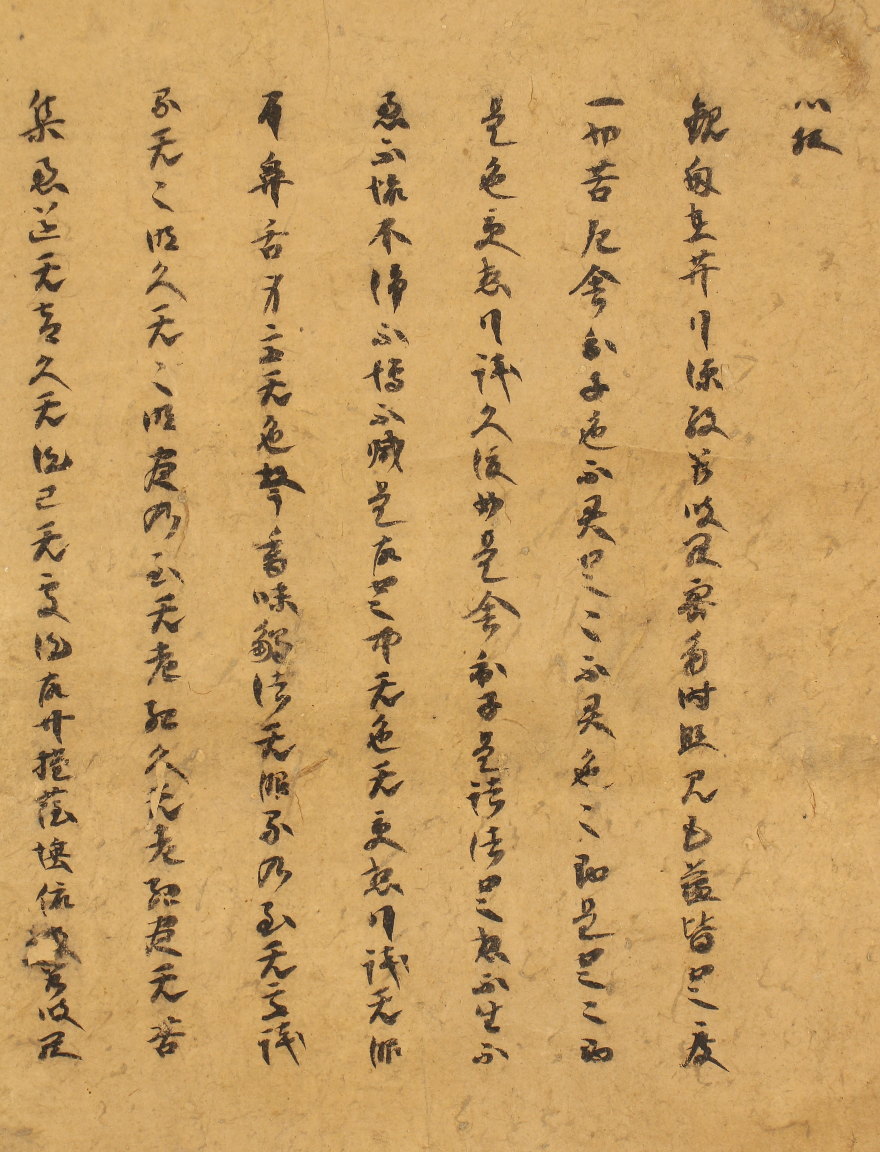 心經
觀自在𦬇行深般若波羅蜜多時照見五蘊皆空度
一切苦厄舍利子色不異空〻不異色〻即是空〻即
是色受想行識亦復如是舍利子是諸法空相不生不
滅不垢不淨不增不減是故空中无色无受想行識无眼
耳鼻舌身意无色聲香味觸法无眼界乃至无意識
界无〻明亦无〻明盡乃至无老死亦无老死盡无苦
集滅道无智亦无得已无所得故菩提薩埵依般若波羅